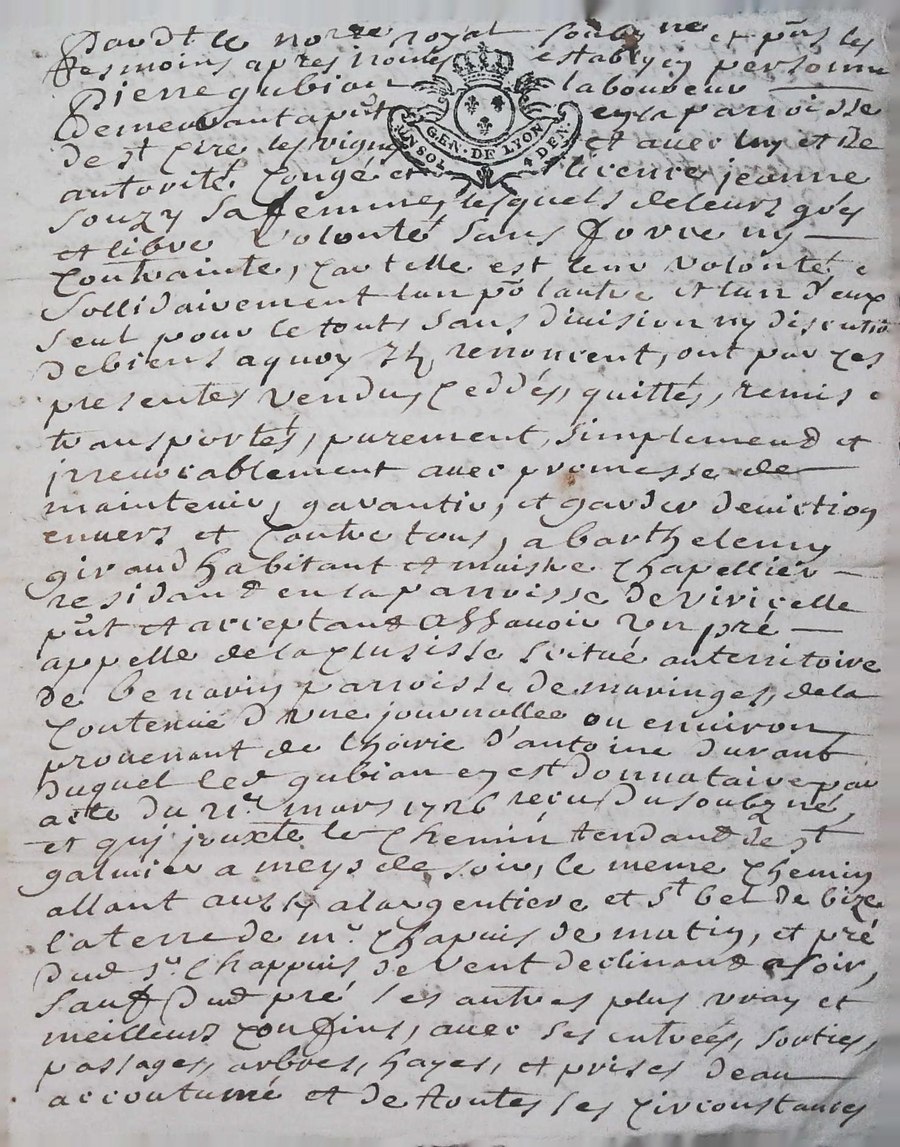 Pardt le no.re royal soub.né et pñs les
tesmoins apres només estably en personne
Pierre gubian laboureur
GEN. DE LYON
UN SOL 4 DEN.
Demeurant a pñt en la parroisse
de st Cire les vignes et avec luy et de
autorité, Congé et licence jeanne
Souzy sa femme, lesquels de leurs gréz
et libre volonté sans force ny
Contrainte, Car telle est leur volonté e
Sollidairement lun põ lautre et lun d'eux
seul pour le tout, sans division ny discutio
de biens a quoy Ilz renoncent, ont par ces
presentes vendu, Ceddés, quittés, remis e
transportés, purement, simplement et
jrrevocablement avec promesse de
maintenir, garantir, et garder deviction
envers et Contre tous, a barthelemy
giraud habitant et maistre Chapellier
residand en la parroisse de Viricelle
pñt et acceptand assavoir Un pré
appelle de la Clusisse scitué au territoire
de benavin parroisse de maringes, de la
Contenüe d'une journallée ou environ
provenant de lhoirie d'antoine durant
duquel led gubian en est donnataire par
acte du 21.e mars 1726 receu du soubz.né,
et quj jouxte le Chemin tendant de st
galmier a meys de soir, le meme Chemin
allant aussy a largentiere et st bel de bize
la terre de mr. Chapuis de matin, et pré
dud sr. Chappuis de vent declinand a soir,
sauf dud pré ses autres plus vray et
meilleurs Confins, avec ses entrées, sorties,
passages, arbres, hayes, et prises deau
accoutumé et de toutes ses Circonstances